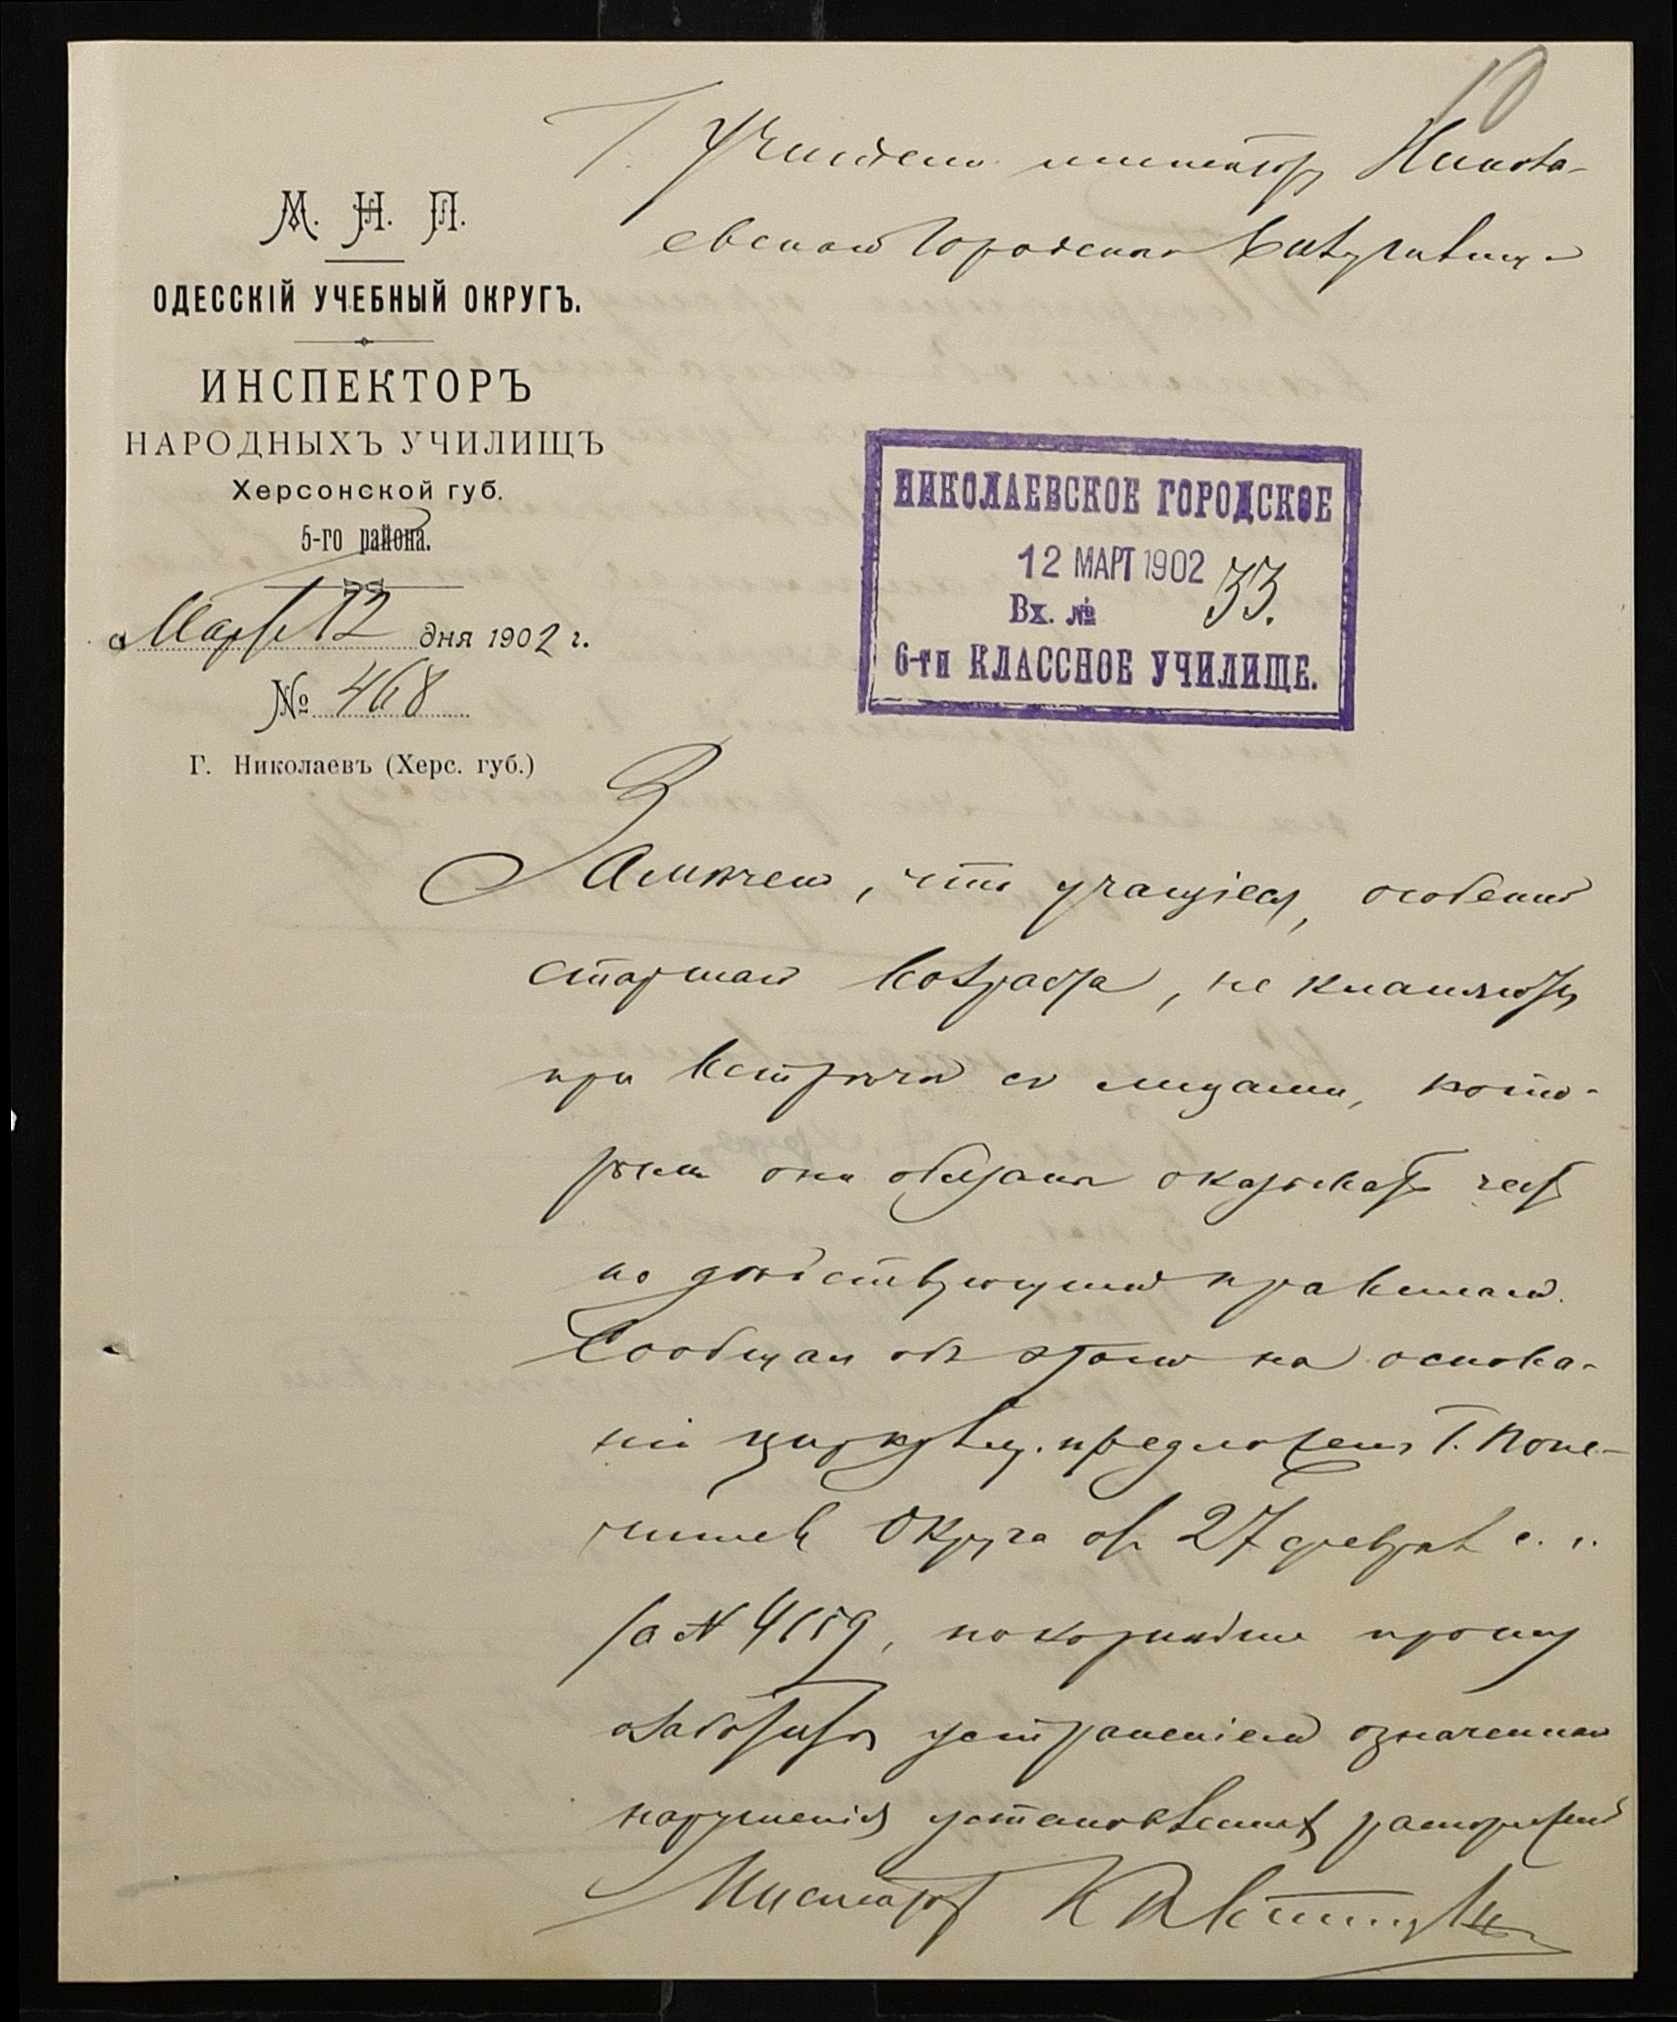 10
Г. Учителю инспектору Никола-
евскаго Городского 6 кл. училища
М. Н. П.
ОДЕССКІЙ УЧЕБНЫЙ ОКРУГЪ.
ИНСПЕКТОРЪ
НАРОДНЫХЪ УЧИЛИЩЪ
Херсонской губ.
5-го района.
Марта 12 дня 1902 г.
№ 468
Г. Николаевъ (Херс. губ.)
НИКОЛАЕВСКОЕ ГОРОДСКОЕ
12 МАРТ 1902
Вх. № 33.
6-ти КЛАССНОЕ УЧИЛИЩЕ.
Замѣчено, что учащіеся, особенно
старшаго возраста, не кланяются
при встрѣчѣ съ лицами, кото-
рымъ они обязаны оказывать честь
по дѣйствующимъ правиламъ.
Сообщая объ этомъ на основа-
ніи циркуляр. предложенія Г. Попе-
чителя Округа отъ 27 февраля с. г.
за № 4159, покорнѣйше прошу
озаботиться устраненіемъ означеннаго
нарушенія установленныхъ распоряженій
Инспекторъ К